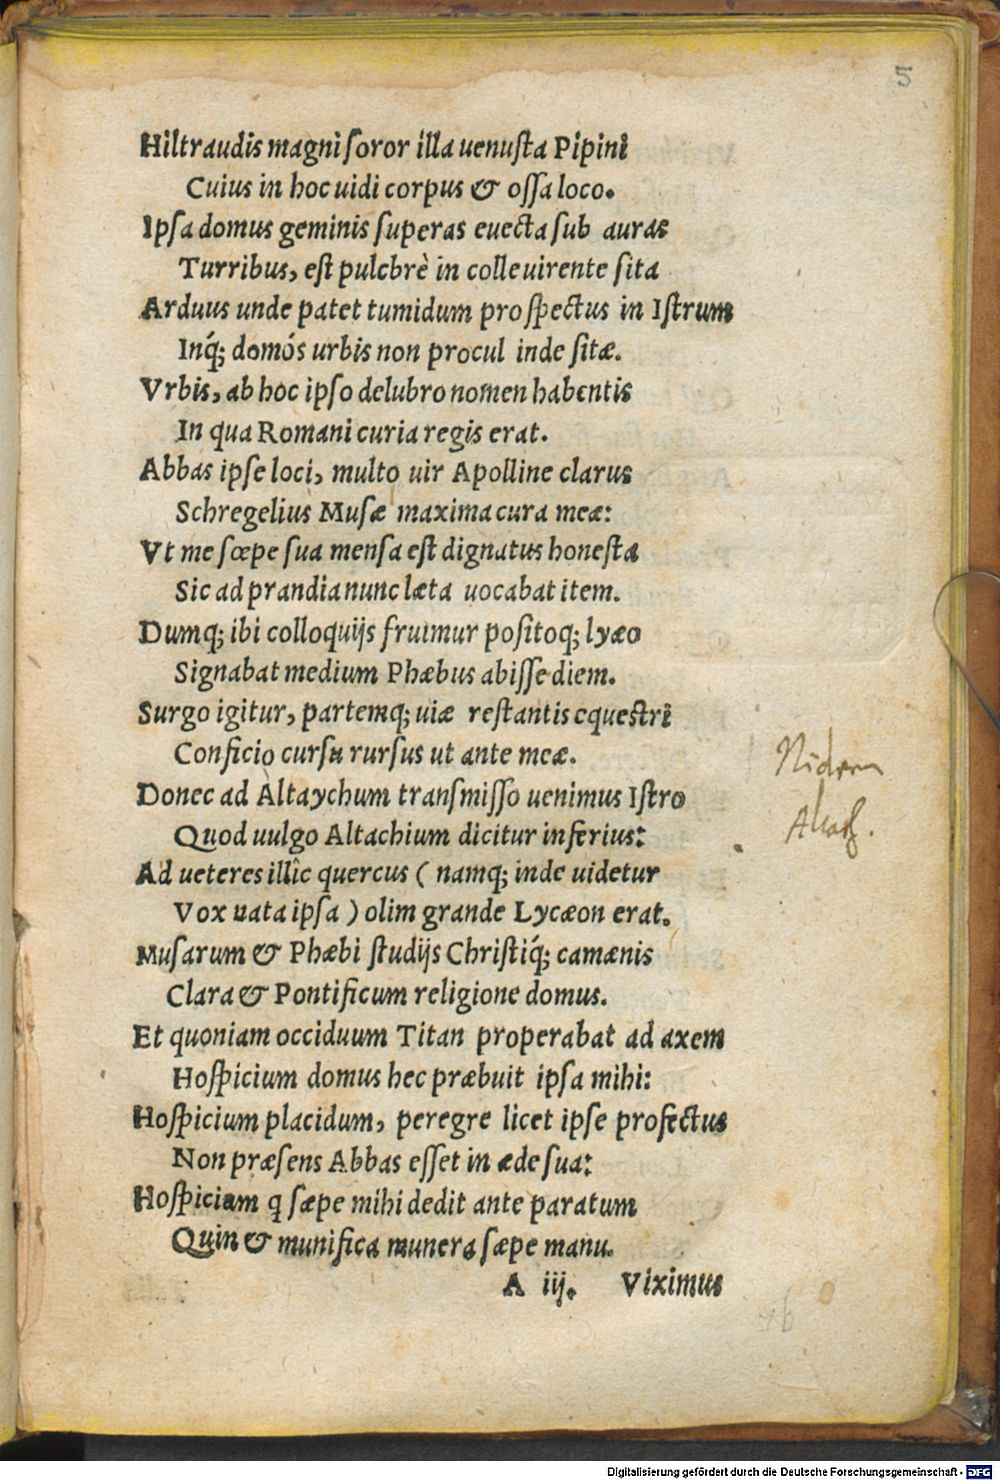 5
Hiltraudis magni soror illa uenusta Pipini
Cuius in hoc uidi corpus & ossa loco.
Ipsa domus geminis superas euecta sub auras
Turribus, est pulchrè in colle uirente sita
Arduus unde patet tumidum prospectus in Istrum
Inq́; domós urbis non procul inde sitæ.
Vrbis, ab hoc ipso delubro nomen habentis
In qua Romani curia regis erat.
Abbas ipse loci, multo uir Apolline clarus
Schregelius Musæ maxima cura meæ:
Vt me sœpe sua mensa est dignatus honesta
Sic ad prandia nunc læta uocabat item.
Dumq; ibi colloquijs fruimur positoq; lyæo
Signabat medium Phæbus abisse diem.
Surgo igitur, partemq; uiæ restantis equestri
Conficio cursu rursus ut ante meæ.
Donec ad Altaychum transmisso uenimus Istro
Quod uulgo Altachium dicitur inferius:
Ad ueteres illîc quercus ( namq; inde uidetur
Vox nata ipsa ) olim grande Lycæon erat.
Musarum & Phæbi studijs Christiq́; camænis
Clara & Pontificum religione domus.
Et quoniam occiduum Titan properabat ad axem
Hospicium domus hec præbuit ipsa mihi:
Hospicium placidum, peregre licet ipse profectus
Non præsens Abbas esset in æde sua:
Hospicium q sæpe mihi dedit ante paratum
Quin & munifica munera sæpe manu.
A iij. Viximus
Nidern
Digitalisierung gefördert durch die Deutsche Forschungsgemeinschaft - DFG